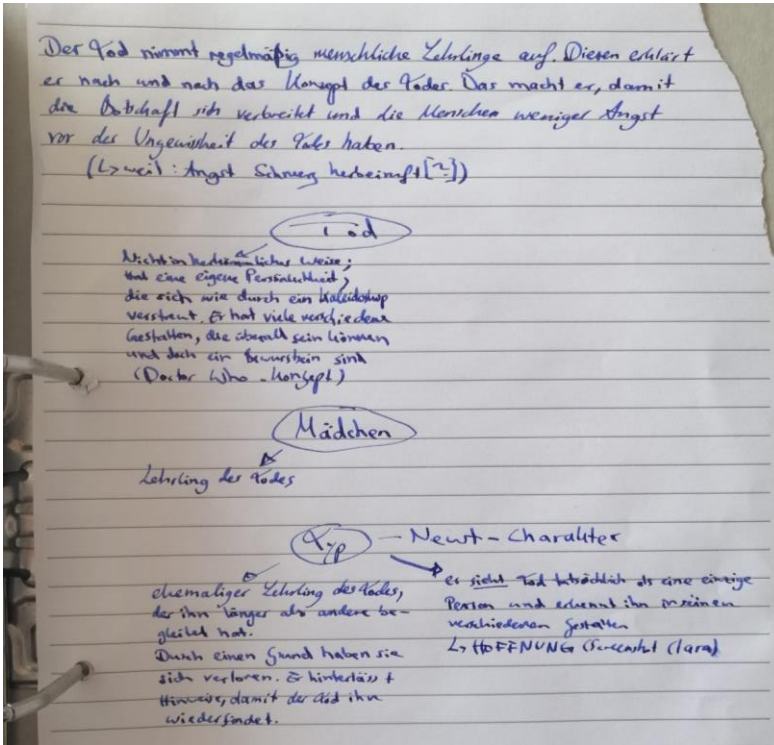 Der Tod nimmt regelmäßig menschliche Lehrlinge auf. Diesen erklärt
er nach und nach das Konzept des Todes. Das macht er, damit
die Botschaft sich verbreitet und die Menschen weniger Angst
vor der Ungewissheit des Todes haben.
(↳ weil: Angst Schmerz herbeiruft [~])
Tod
Nicht in herkömmlicher Weise;
hat eine eigene Persönlichkeit,
die sich wie durch ein Kaleidoskop
verstreut. Er hat viele verschiedene
Gestalten, die überall sein können
und doch ein Bewusstsein sind
(Doctor Who - Konzept)
Mädchen
Lehrling des Todes
Typ - Newt-Charakter
ehemaliger Lehrling des Todes,
der ihn länger als andere be-
gleitet hat.
Durch einen Grund haben sie
sich verloren. Er hinterlässt
Hinweise, damit der Tod ihn
wiederfindet.
er sieht Tod tatsächlich als eine einzige
Person und erkennt ihn in seinen
verschiedenen Gestalten
↳ HOFFNUNG (Screenshot Clara)